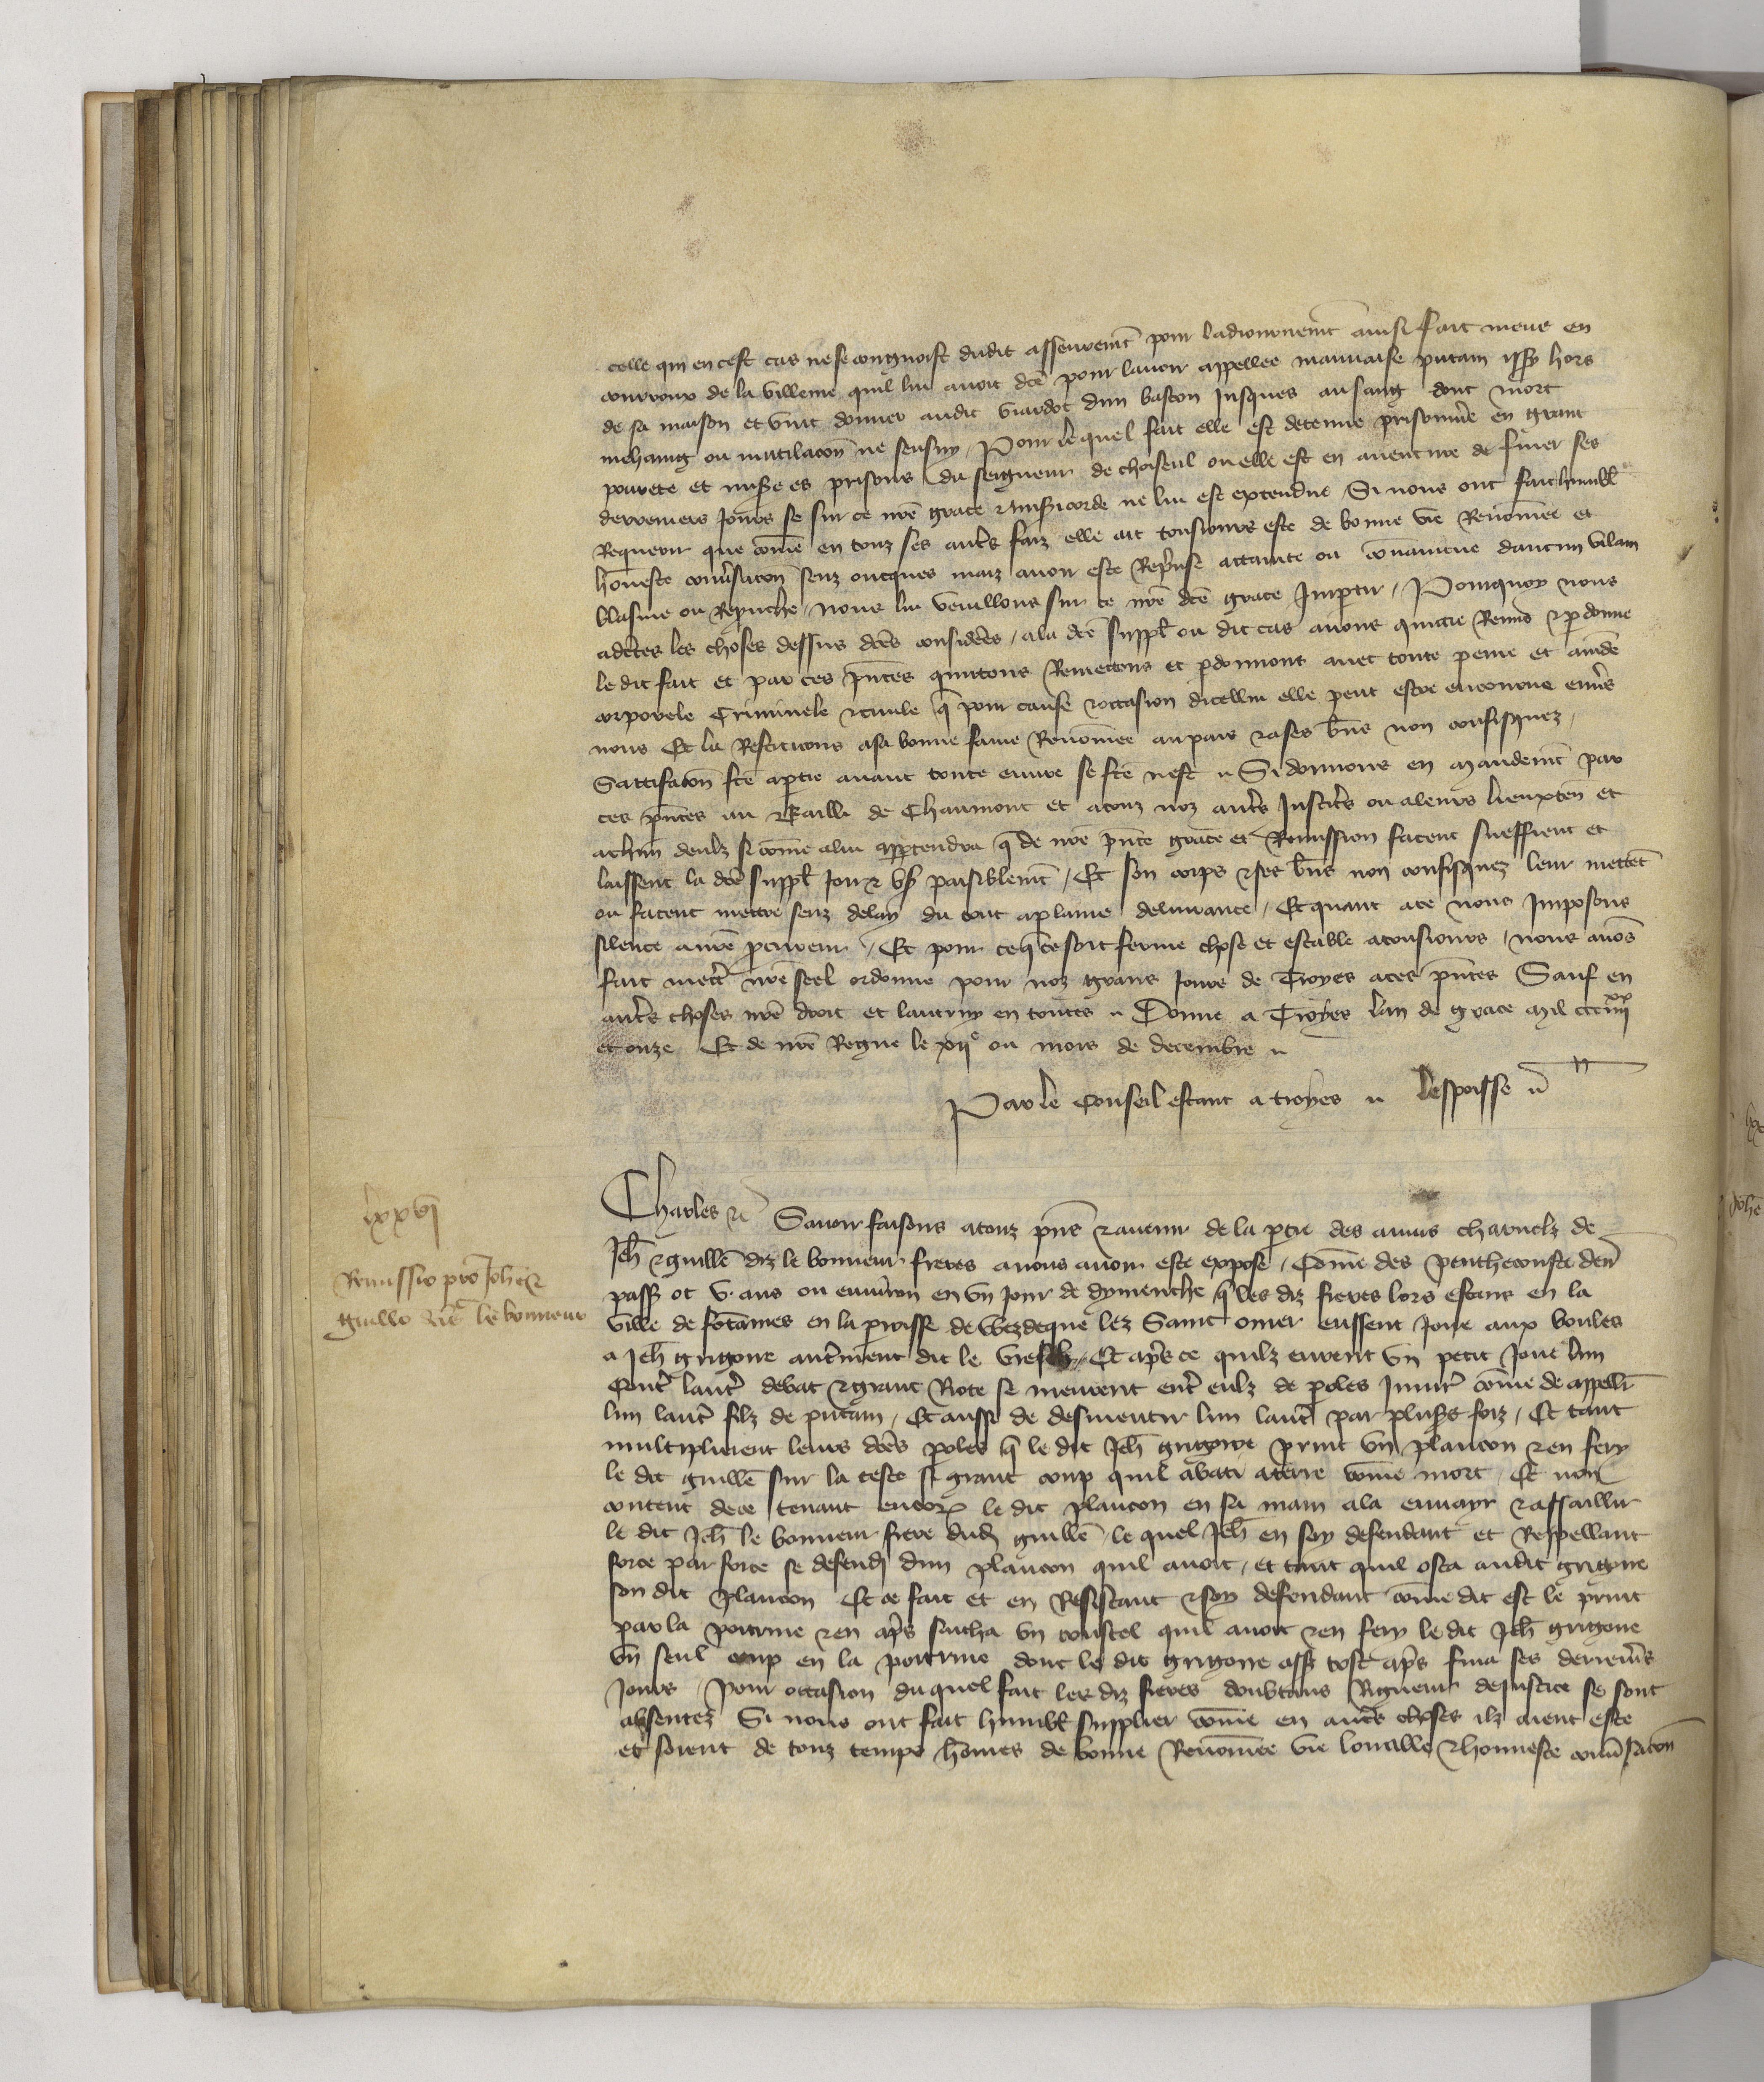 celle qui en cest cas ne se congnoist dudit asseuremt pour ladiournemt ainsi fait meue en
courroux de la villenie quil lui auoit dce pour lauoir appellee mauuaise putain yssy hors
de sa maison et vint donner audit viardot dun baston jusques au sang dont mort
mehaing ou mutilacon ne sensuy / Pour le quel fait elle est detenue prisonniere en grant
pourete et misere es prisons du seigneur de choiseul ou elle est en auenture de finer ses
derreniers jours se sur ce nre grace & misericorde ne lui est extendue Si nous ont fait humbl
Requerir que comme en touz ses autrs faiz elle ait tousiours este de bonne vie Renommee et
honneste conuersacon senz oncques maiz auoir este Reprinse attainte ou conuaincue daucun vilain
blasme ou Reprouche / nous lui vueillons sur ce nre dce grace Impartir / Pourquoy nous
adcertes les choses dessus dces considerees / a la dce suppl ou dit cas auons quictie Remis & pardonne
le dit fait et par ces pntes quictons Remettons et pardonnons auec toute peine et amende
corporele Criminele & ciuile q pour cause & occasion dicellui elle peut estre encourue enuers
nous Et la Restituons a sa bonne fame Renommee au pais & a ses biens non confisquez /
Satisfacon fce a partie auant toute euure se fce nest Si donnons en mandemt par
ces pntes au Bailli de Chaumont et a touz noz autrs Justicrs ou a leurs lieuxten et
a chun deulz si comme a lui appartendra q de nre pnte grace et Remission facent sueffrent et
laissent la dce suppl joir & vser paisiblemt / Et son corps & ses biens non confisquez leur mettent
ou facent mettre senz delay du tout a plaine deliurance / Et quant a ce nous Imposons
silence a nre procureur / Et pour ce q ce soit ferme chose et estable a tousiours / nous auons
fait mettr nre seel ordonne pour noz grans jours de Troyes a ces pntes Sauf en
autrs choses nre droit et lautruy en toutes Donne a Troyes lan de grace mil ccc iiiixx
et onze Et de nre Regne le xiie ou mois de decembre
Par le Conseil estant a troyes Lespoisse
lxxvi
Remissio pro Johe &
guillo dictis le bonneur
Charles &c Sauoir faisons a touz pns & auenir de la partie des amis charnelz de
Jeh & guille diz le bonneur freres a nous auoir este expose / Comme des penthecouste derr
passe ot v. ans ou enuiron en vn jour de dymenche q les diz freres lors estans en la
ville de fontaines en la parroisse de Wezdeque lez Saint omer eussent joue aux boules
a Jeh grigore autrement dit le / Et apres ce quilz eurent vn petit joue lun
contr lautr debat & grant Riote se meurent entr eulz de paroles jniur comme de appeller
lun lautr filz de putain / Et aussi de desmentir lun lautr par plusrs foiz / Et tant
multiplierent leurs dces paroles q le dit Jeh grigore print vn plancon & en fery
le dit guille sur la teste si grant coup quil abati a terre comme mort / Et non
content de ce tenant encore le dit plancon en sa main ala enuayr & assaillir
le dit Jeh le bonneur frere dud guille / le quel Jeh en soy defendant et Reppellant
force par force se defendi dun plancon quil auoit / et tant quil osta audit grigore
son dit plancon Et ce fait et en Resistant & soy defendant comme dit est le print
par la poitrine & en apres sacha vn coustel quil auoit & en fery le dit Jeh grigore
vn seul coup en la poitrine dont le dit grigore assez tost apres fina ses derreniers
jours / Pour occasion du quel fait les diz freres doubtans Rigueur de justice se sont
absentez Si nous ont fait humbl supplier comme en autrs choses ilz aient este
et soient de touz temps hommes de bonne Renommee vie louable & honneste conuersacon